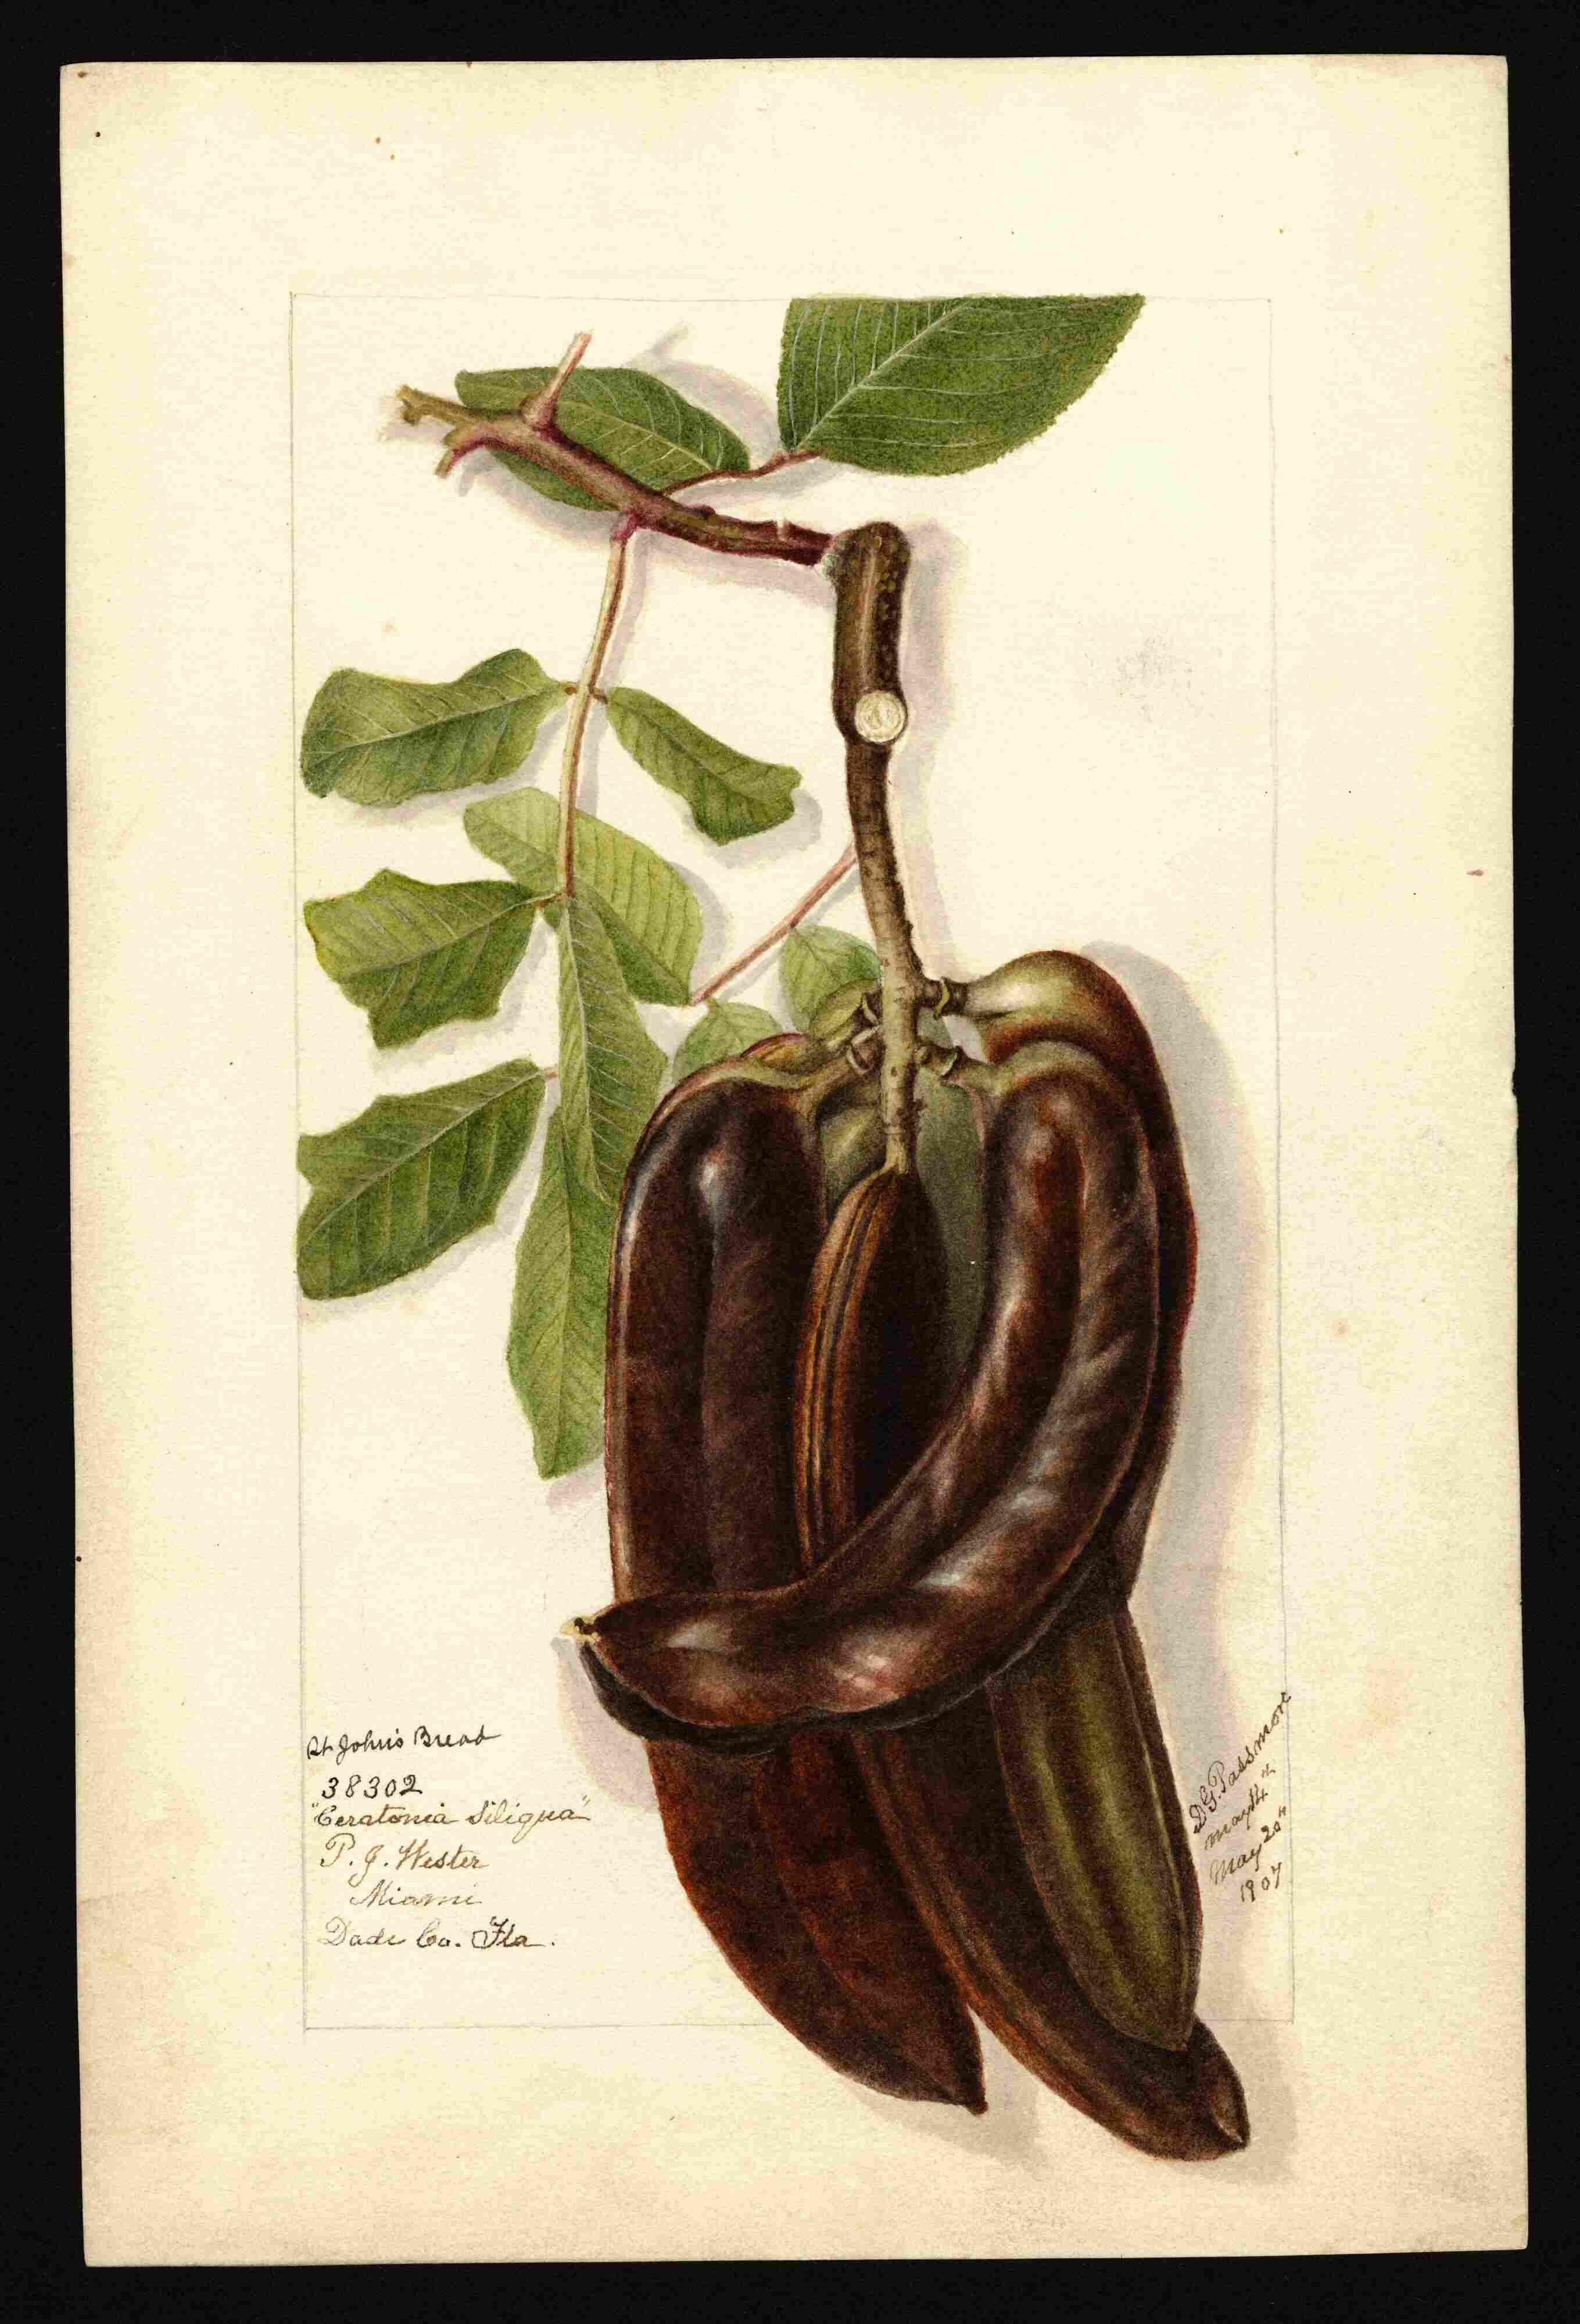 St John's Bread
38302
"Ceratonia Siliqua"
P. J. Wester
Miami
Dade Co. Fla.
D.G. Passmore
May 14th
May 20th
1907